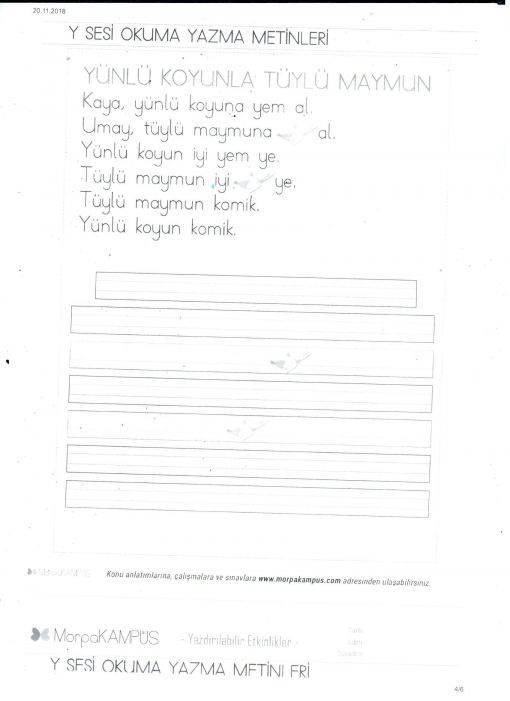 20.11.2018
Y SESİ OKUMA YAZMA METİNLERİ
YÜNLÜ KOYUNLA TÜYLÜ MAYMUN
Kaya, yünlü koyuna yem al.
Umay, tüylü maymuna al.
Yünlü koyun iyi yem ye.
Tüylü maymun iyi ye.
Tüylü maymun komik.
Yünlü koyun komik.
MorpaKAMPÜS Konu anlatımlarına, çalışmalara ve sınavlara www.morpakampus.com adresinden ulaşabilirsiniz.
MorpaKAMPÜS - Yazdırılabilir Etkinlikler -
Tarih:
Adım:
Soyadım:
Y SESİ OKUMA YAZMA METİNLERİ
4/6